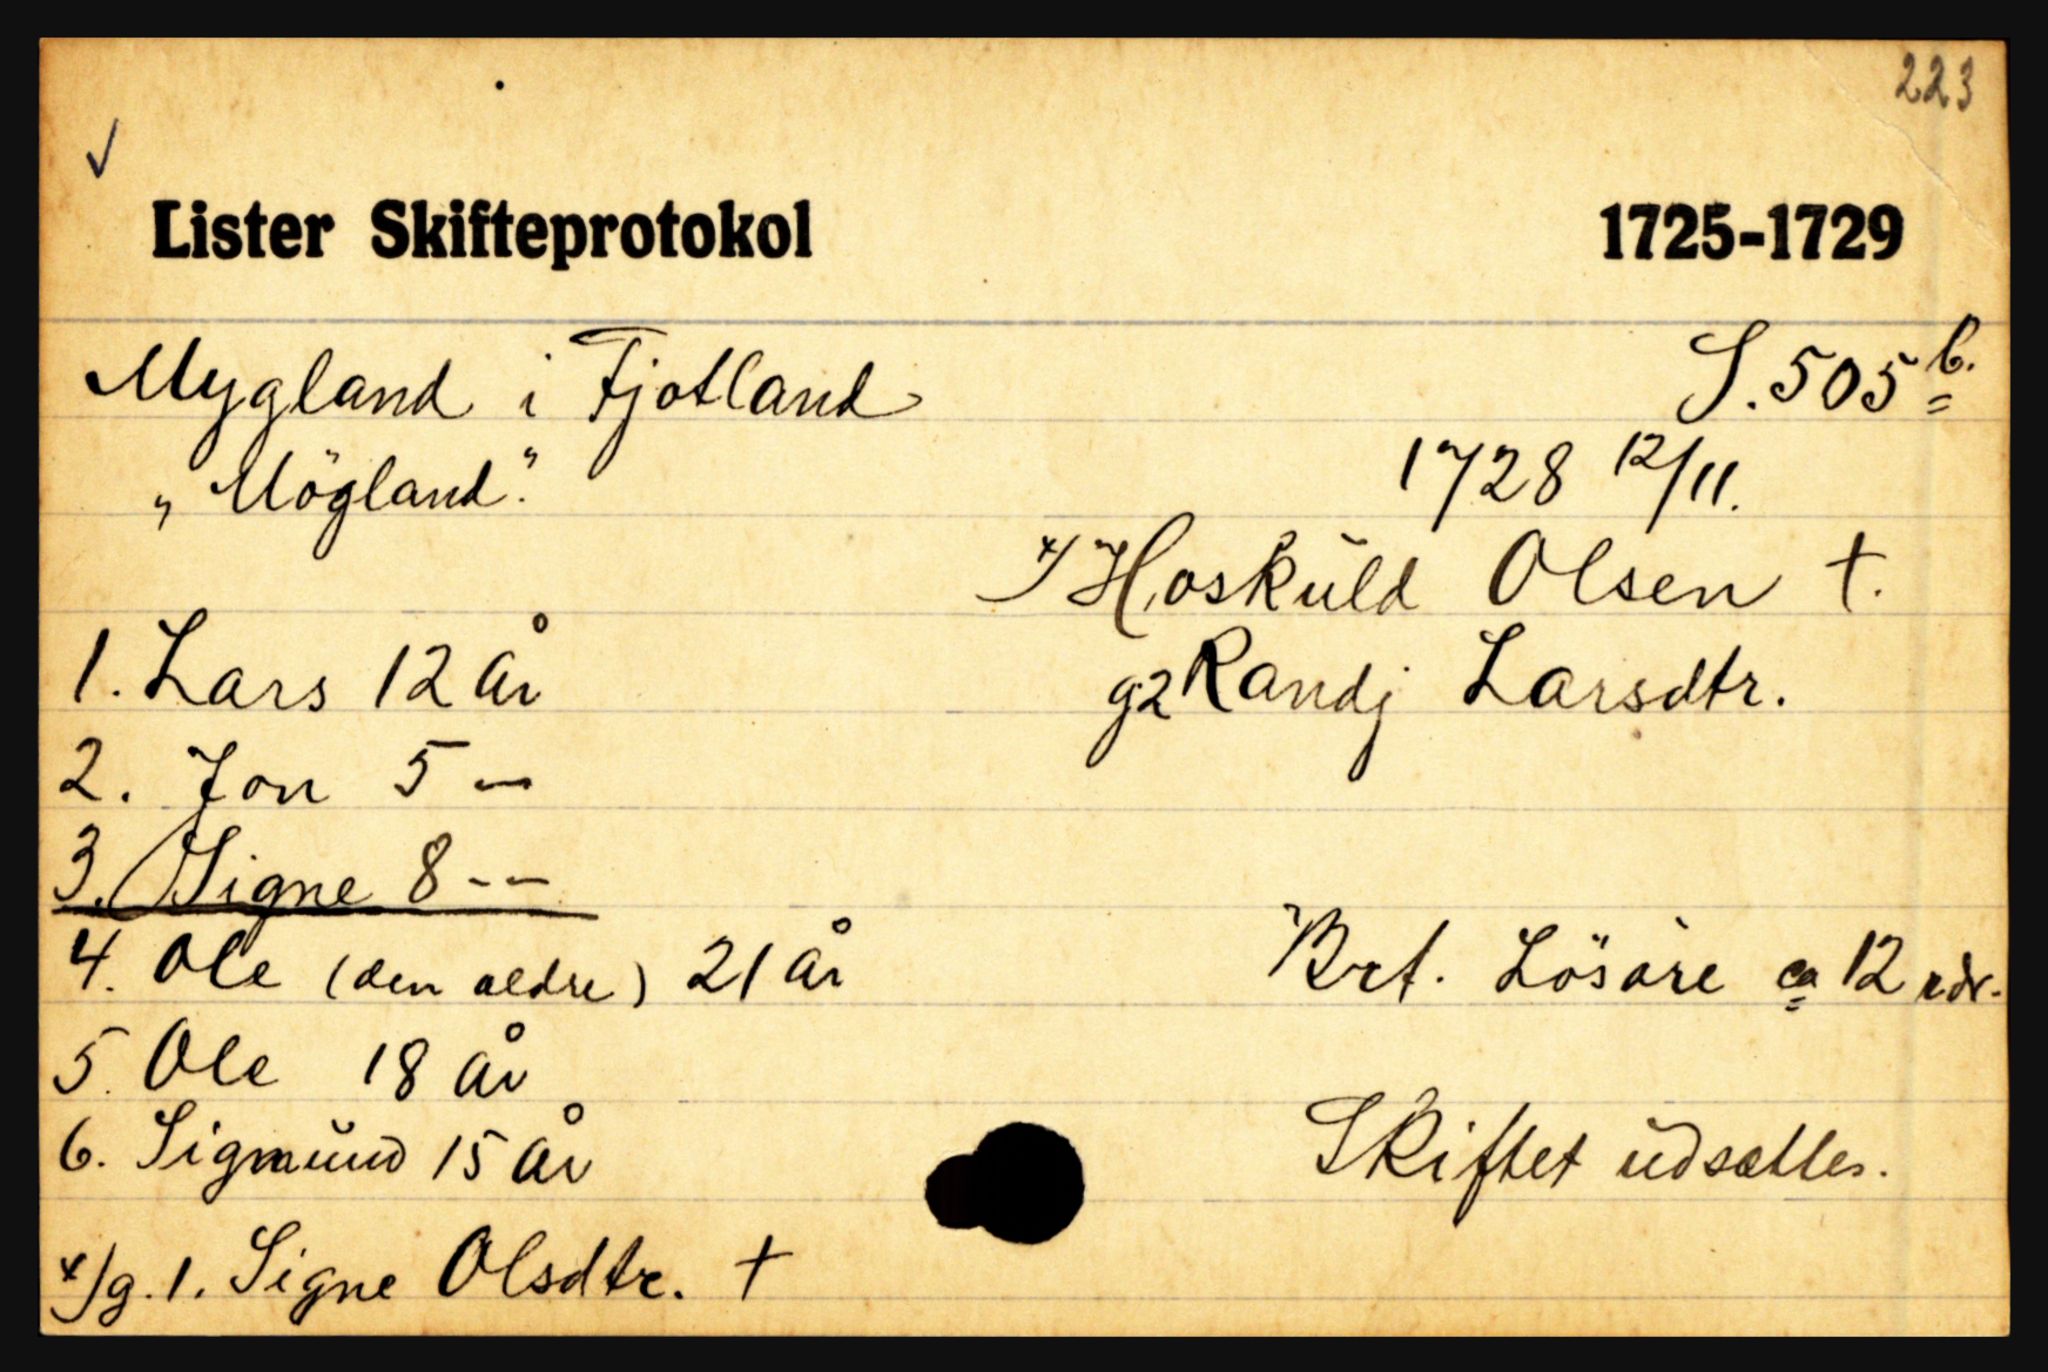 223
✓
Lister Skifteprotokol 1725-1729
Mygland i Fjotland S. 505 b.
„Mögland." 1728 12/11.
x/ Hoskŭld Olsen †.
1. Lars 12 år g2 Randj Larsdtr.
2. Jon 5 —
3. Signe 8 - —
4. Ole (den aeldre) 21 år Brt. Lösöre ca 12 rdr.
5. Ole 18 år
6. Sigmŭnd 15 år Skiftet ŭdsættes.
x/ g. 1. Signe Olsdtr. †